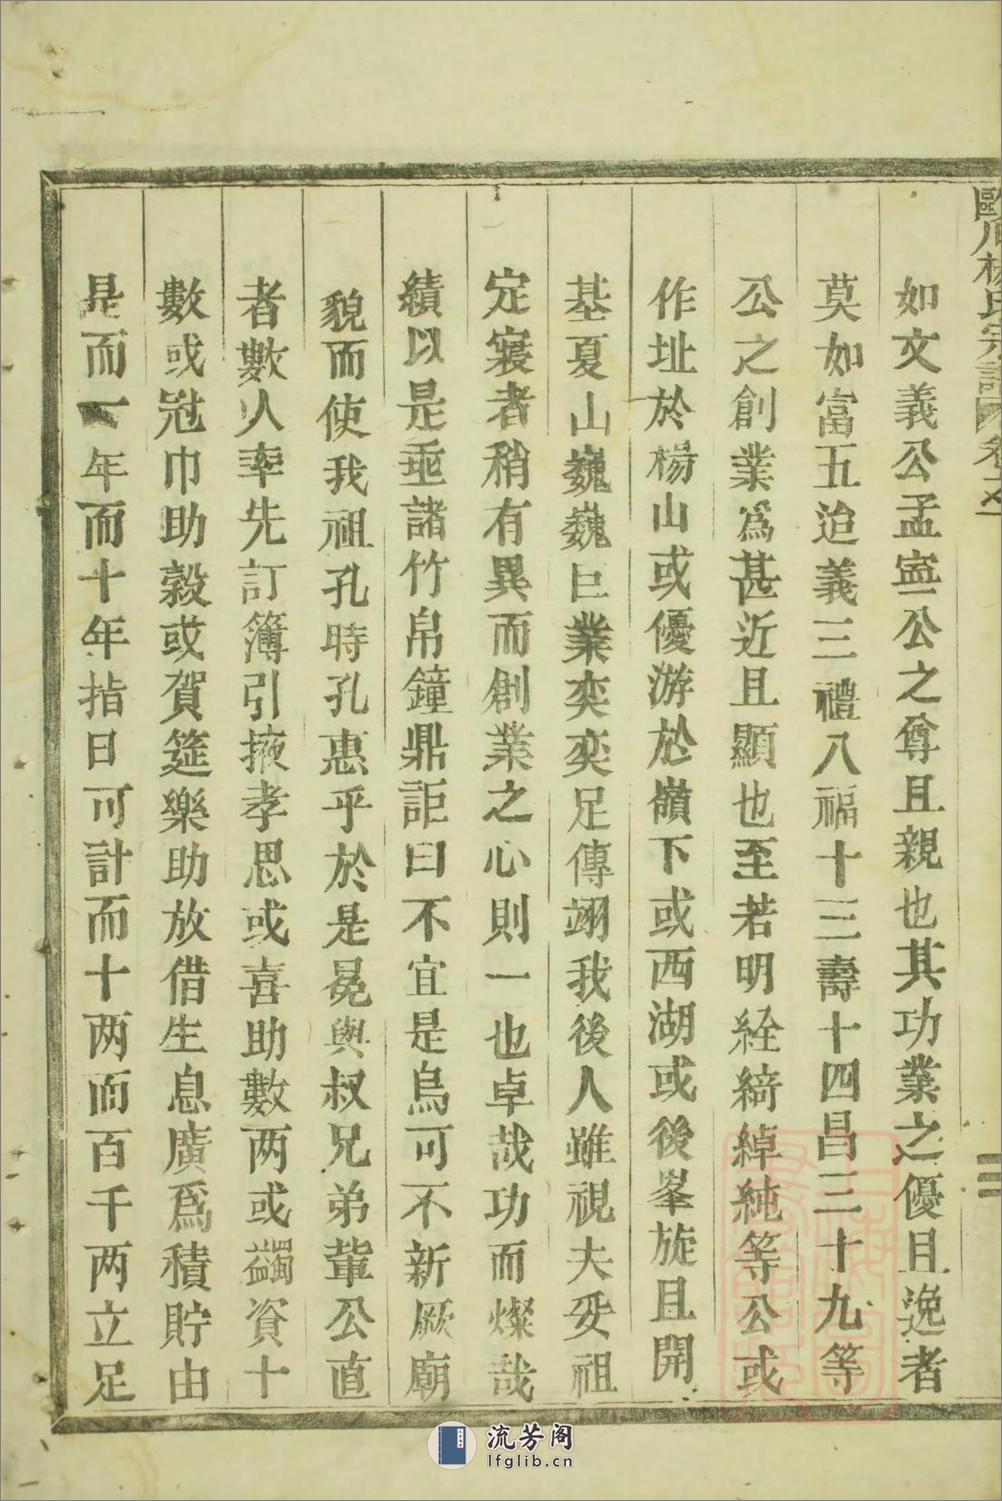 歐川楊氏宗譜 卷之一
三
如文義公孟寍公之尊且親也其功業之優且逸者
莫如富五迨義三禮八福十三壽十四昌三十九等
公之創業爲甚近且顯也至若明經綺綽純等公或
作址於楊山或優游於嶺下或西湖或後峯旋且開
基夏山巍巍巨業奕奕足傳翊我後人雖視夫妥祖
定寢者稍有異而創業之心則一也卓哉功而燦哉
績以是垂諸竹帛鐘鼎詎曰不宜是烏可不新厥廟
貌而使我祖孔時孔惠乎於是晃與叔兄弟輩公直
者數人率先訂簿引掖孝思或喜助數两或蠲資十
數或冠巾助穀或賀筵樂助放借生息廣爲積貯由
是而一年而十年指日可計而十两而百千两立足
流芳阁
lfglib.cn